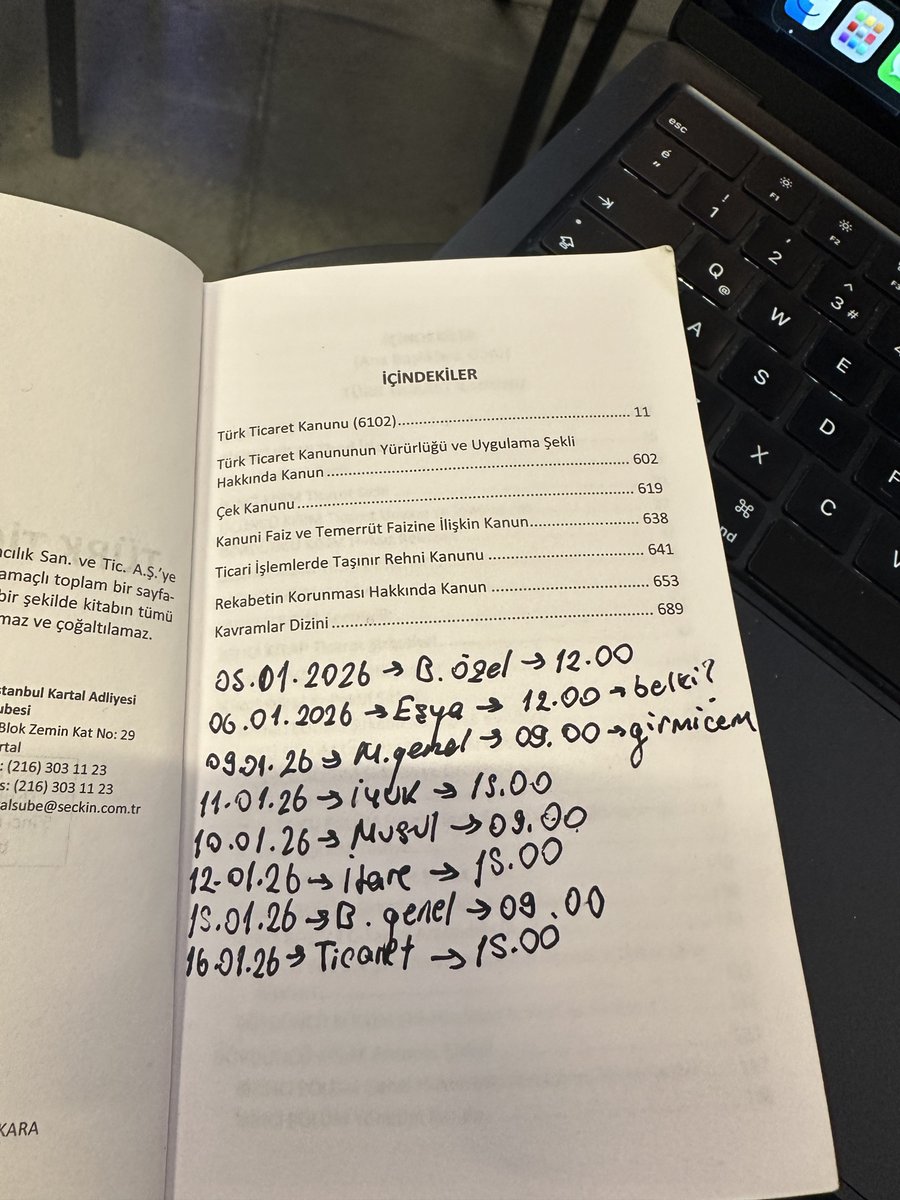 ncılık San. ve Tic. A.Ş.'ye
amaçlı toplam bir sayfa-
bir şekilde kitabın tümü
maz ve çoğaltılamaz.
stanbul Kartal Adliyesi
ubesi
Blok Zemin Kat No: 29
rtal
: (216) 303 11 23
s: (216) 303 11 23
alsube@seckin.com.tr
KARA
İÇİNDEKİLER
Türk Ticaret Kanunu (6102)............................................................ 11
Türk Ticaret Kanununun Yürürlüğü ve Uygulama Şekli
Hakkında Kanun ............................................................ 602
Çek Kanunu............................................................ 619
Kanuni Faiz ve Temerrüt Faizine İlişkin Kanun........................ 638
Ticari İşlemlerde Taşınır Rehni Kanunu .............................. 641
Rekabetin Korunması Hakkında Kanun .............................. 653
Kavramlar Dizini ............................................................ 689
05.01.2026 → B. özel → 12.00
06.01.2026 → Eşya → 12.00 → belki?
09.01.26 → M.genel → 09.00 → girmicem
11.01.26 → iyuk → 15.00
10.01.26 → Musul → 09.00
12.01.26 → itare → 15.00
15.01.26 → B. genel → 09.00
16.01.26 → Ticaret → 15.00
esc
é
"
!
1
'
2
^
3 #
F1
F2
Q @
W
E
A
S
D
X
C
⌘